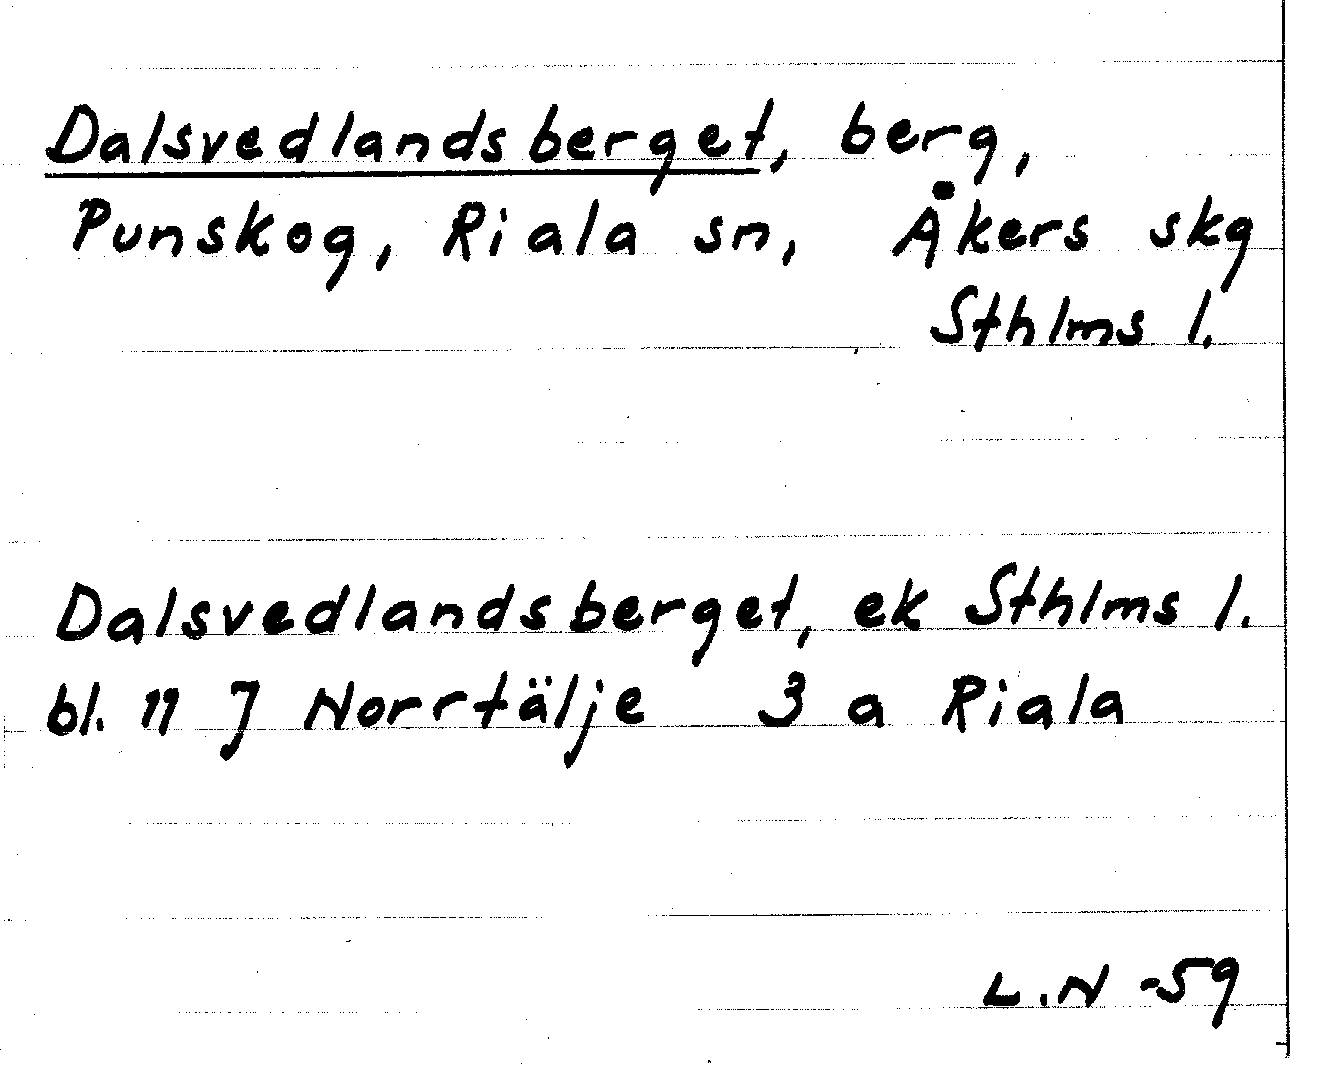 Dalsvedlandsberget, berg,
Punskog, Riala sn, Åkers skg
Sthlms l.
Dalsvedlandsberget, ek Sthlms l.
bl. 11 J Norrtälje 3 a Riala
L.N -59